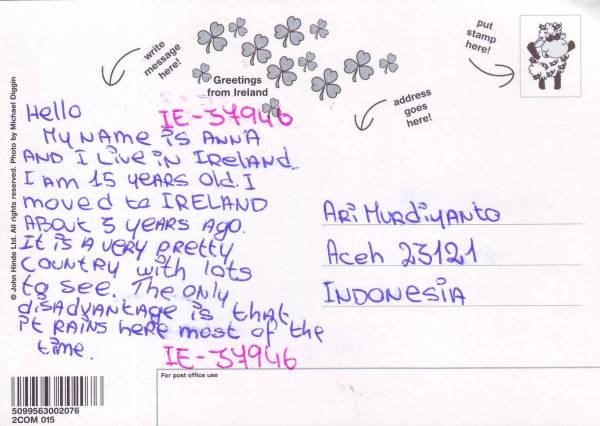 write
message
here!
Greetings
from Ireland
put
stamp
here!
address
goes
here!
© John Hinde Ltd. All rights reserved. Photo by Michael Diggin
Hello
IE-37946
My name is Anna
and I live in Ireland.
I am 15 years old. I
moved to IRELAND
about 3 years ago.
It is a very pretty
country with lots
to see. The only
disadvantage is that
it rains here most of the
time.
IE-37946
Ari Murdiyanto
Aceh 23121
INDONESIA
For post office use
5099563002076
2COM 015